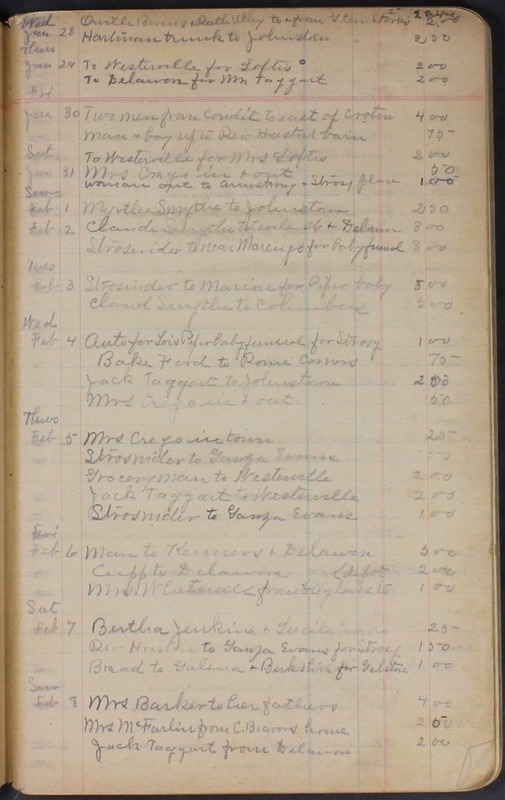 Wed
Jan 28 Orville Beavers & Ruth Utley to & from Glen
Hartman trunk to Johnston 2 50
Thurs
Jan 29 To Westerville for Loftis 2 00
To Delawon for Mr. Taggart 2 00
Fri
Jan 30 Two men from Condit to east of Croton 4 00
Man & boy up to Rev Huston barn 75
Sat
To Westerville for Mrs Loftis 2 00
Jan 31 Mrs Crego in & out 50
woman out to Armstrong & Strosy place 1 00
Sun
Feb 1 Myrtle Smythe to Johnstown 2 50
Feb 2 Claude Smythe to & Delawon 3 00
Strosnider to near Marengo for baby funeral 3 00
Tues
Feb 3 Strosnider to Marion for Piper baby 8 00
Claud Smythe to Columbus 5 00
Wed
Feb 4 Auto for Lois Piper baby funeral for Strosy 1 00
Bake Ford to Rome Corners 75
Jack Taggart to Johnstown 2 00
Mrs Crego in & out 50
Thurs
Feb 5 Mrs Crego in town 25
Strosnider to Ganza Evans
Grocery man to Westerville 2 00
Jack Taggart to Westerville 2 00
Strosnider to Ganza Evans 1 00
Fri
Feb 6 Man to Kenners & Delawon 5 00
Cupp to Delawon depot 2 00
Mrs from 1 00
Sat
Feb 7 Bertha Jenkins & Lucile 25
Rev Huston to Ganza Evans for Strosy 1 50
Bread to Galena & Berkshire for 1 00
Sun
Feb 8 Mrs Barker to her fathers 4 00
Mrs McFarlin from C. Beavers home 2 50
Jack Taggart from Delawon 2 00